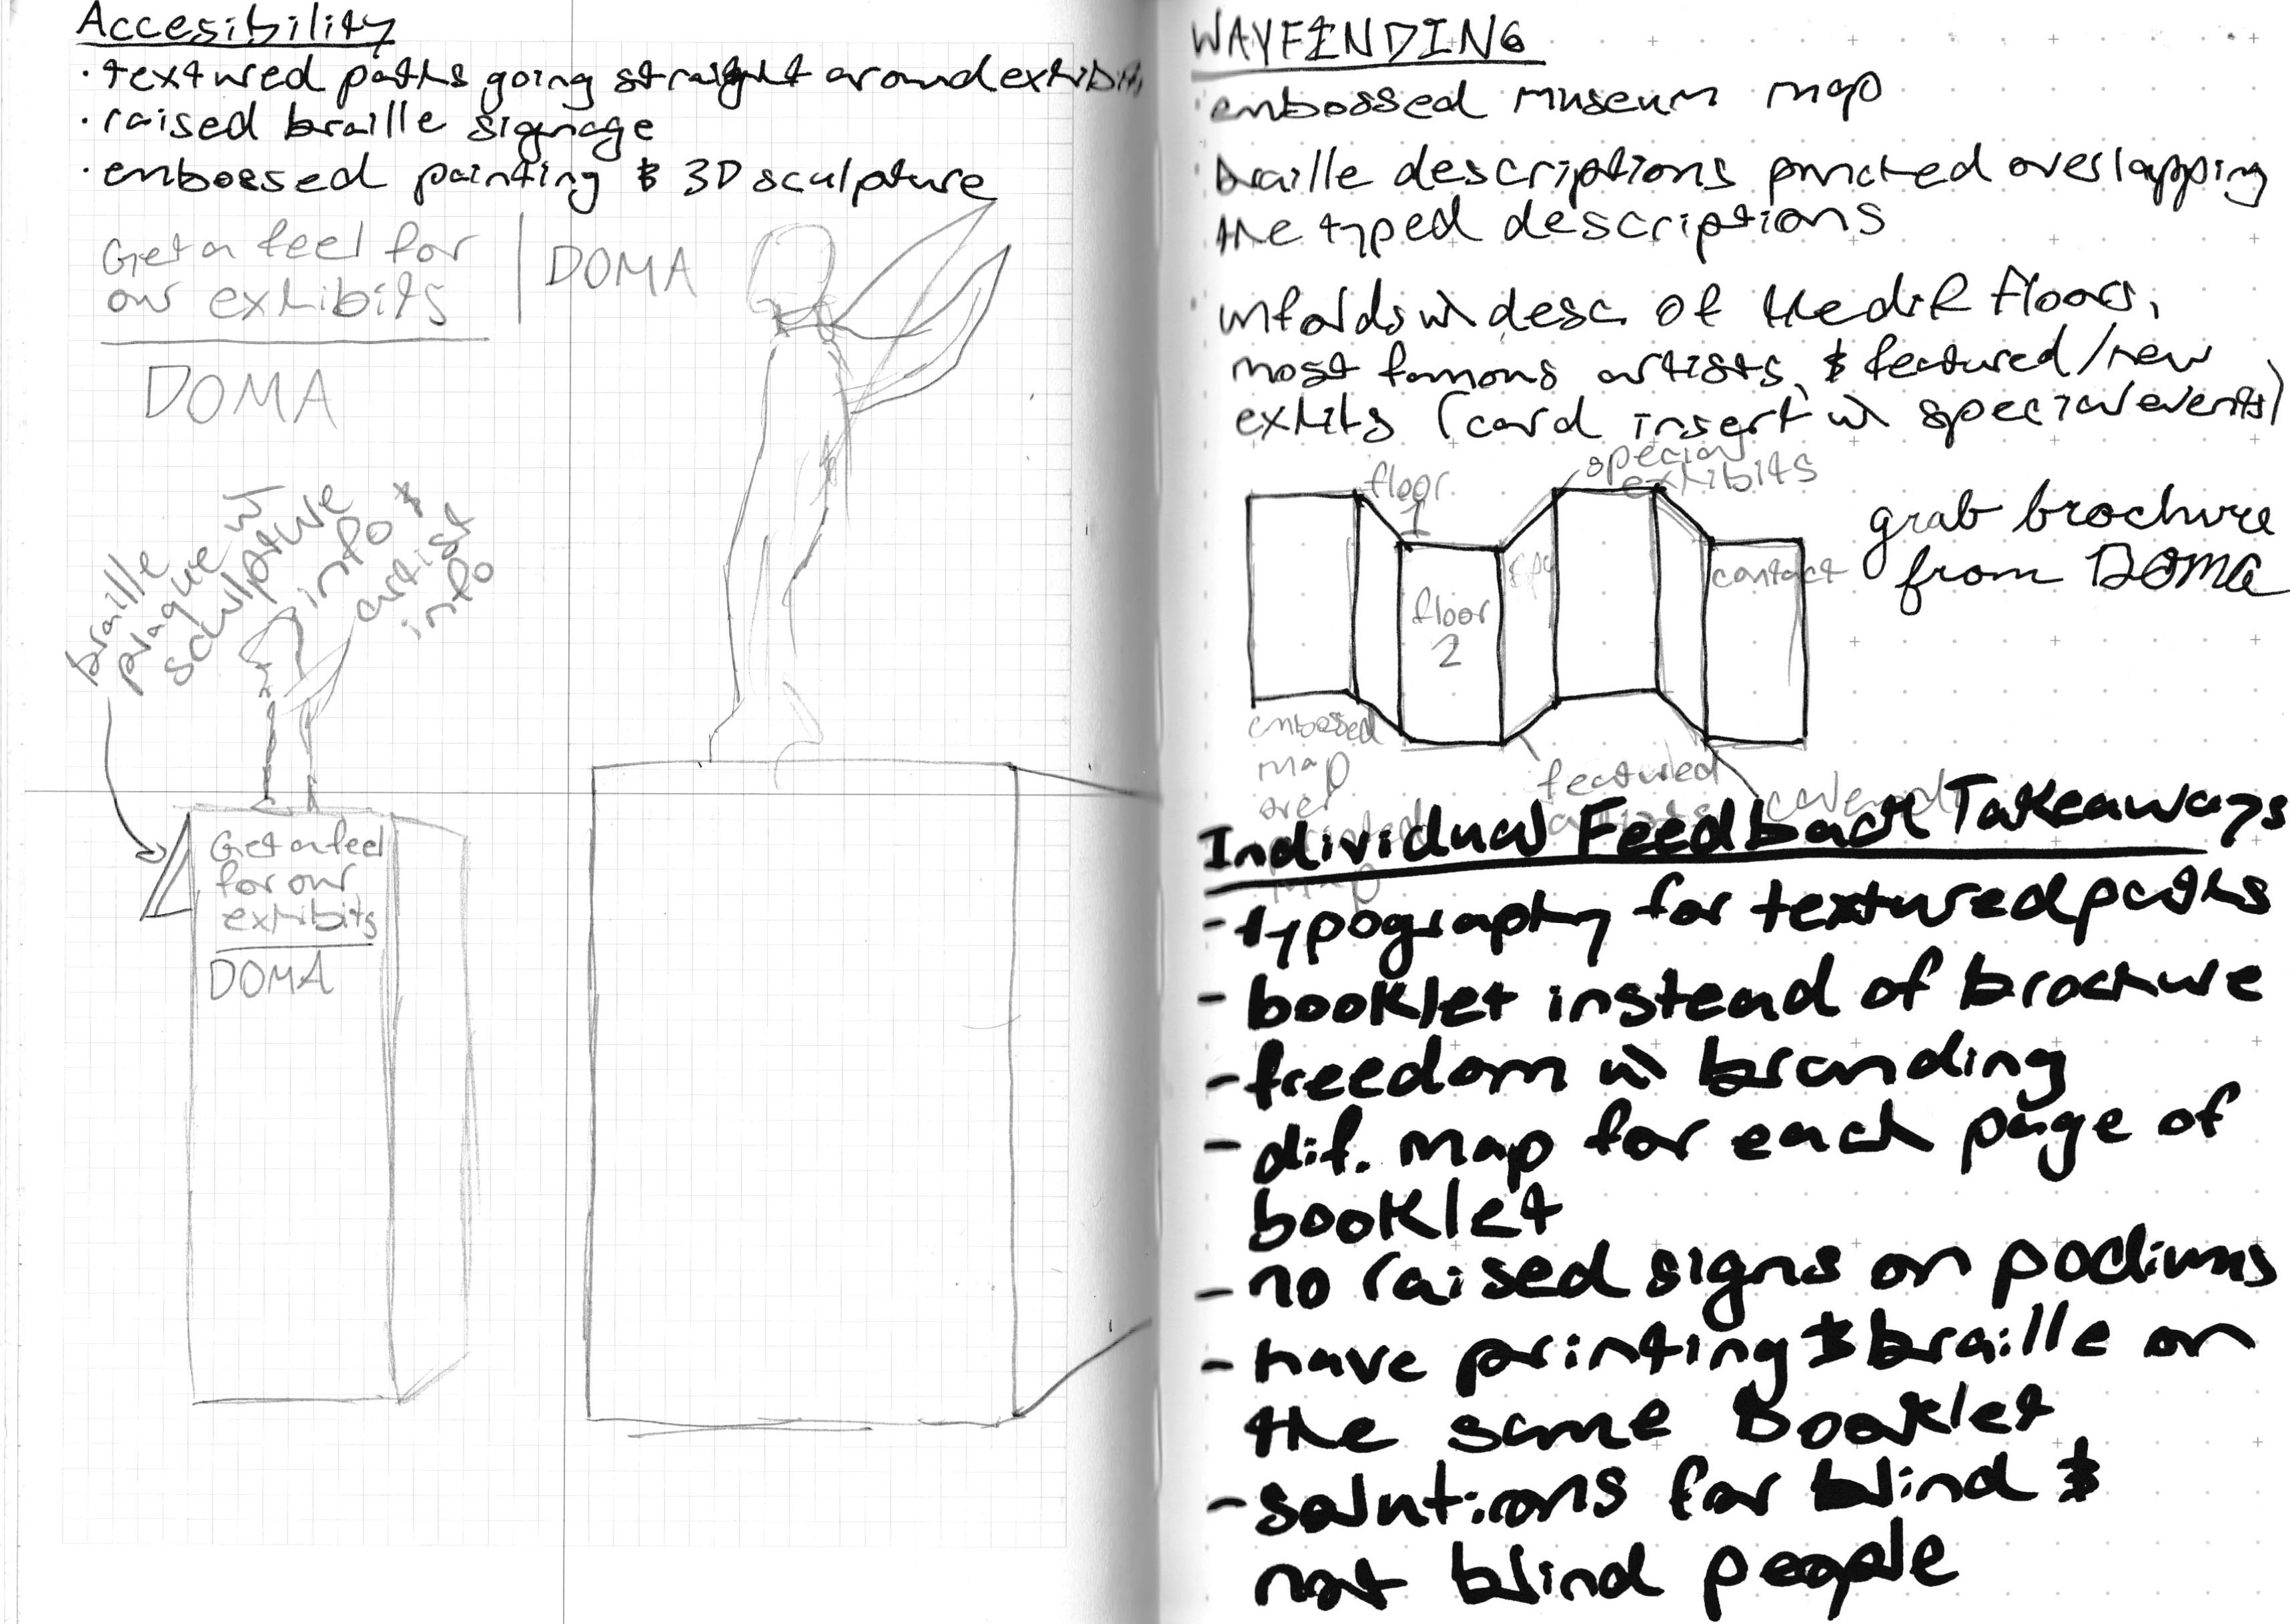 Accesibility
· textured paths going straight around exhibits
· raised braille signage
· embossed painting & 3D sculpture
Get a feel for
our exhibits
DOMA
DOMA
braille
plaque w/
sculpture
info &
artist
info
Get a feel
for our
exhibits
DOMA
WAYFINDING
· embossed museum map
· braille descriptions punched overlapping
the typed descriptions
· unfolds w desc. of the dif floors,
most famous artists, & featured/new
exhits (card insert w special events)
floor
1
special
exhibits
floor
2
spe
contact
grab brochure
from DOMA
embossed
map
over
printed
map
featured
artists
calend
Individual Feedback Takeaways
- typography for textured paths
- booklet instead of brochure
- freedom w branding
- dif. map for each page of
booklet
- no raised signs on podiums
- have printing & braille on
the same booklet
- solutions for blind &
not blind people